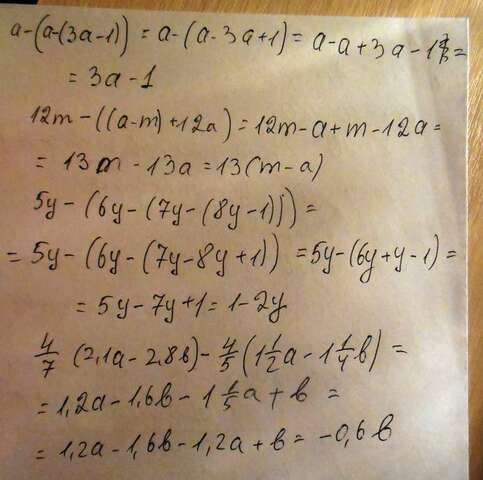 a-(a-(3a-1)) = a-(a-3a+1) = a-a+3a-1 =
= 3a-1
12m-((a-m)+12a) = 12m-a+m-12a =
= 13m-13a = 13(m-a)
5y-(6y-(7y-(8y-1))) =
= 5y-(6y-(7y-8y+1)) = 5y-(6y+y-1) =
= 5y-7y+1 = 1-2y
4/7 (2,1a-2,8b)-4/5(1 1/2a-1 1/4b) =
= 1,2a-1,6b-1 1/5a+b =
= 1,2a-1,6b-1,2a+b = -0,6b